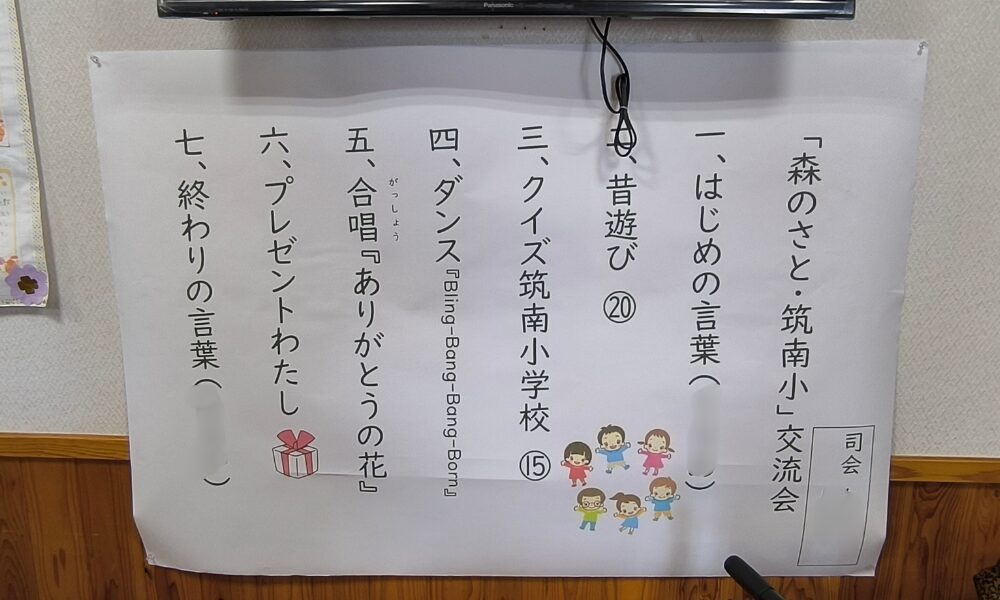 Panasonic
「森のさと・筑南小」交流会
司会
一、はじめの言葉（ ）
二、昔遊び ⑳
三、クイズ筑南小学校 ⑮
四、ダンス『Bling-Bang-Bang-Born』
がっしょう
五、合唱『ありがとうの花』
六、プレゼントわたし
七、終わりの言葉（ ）